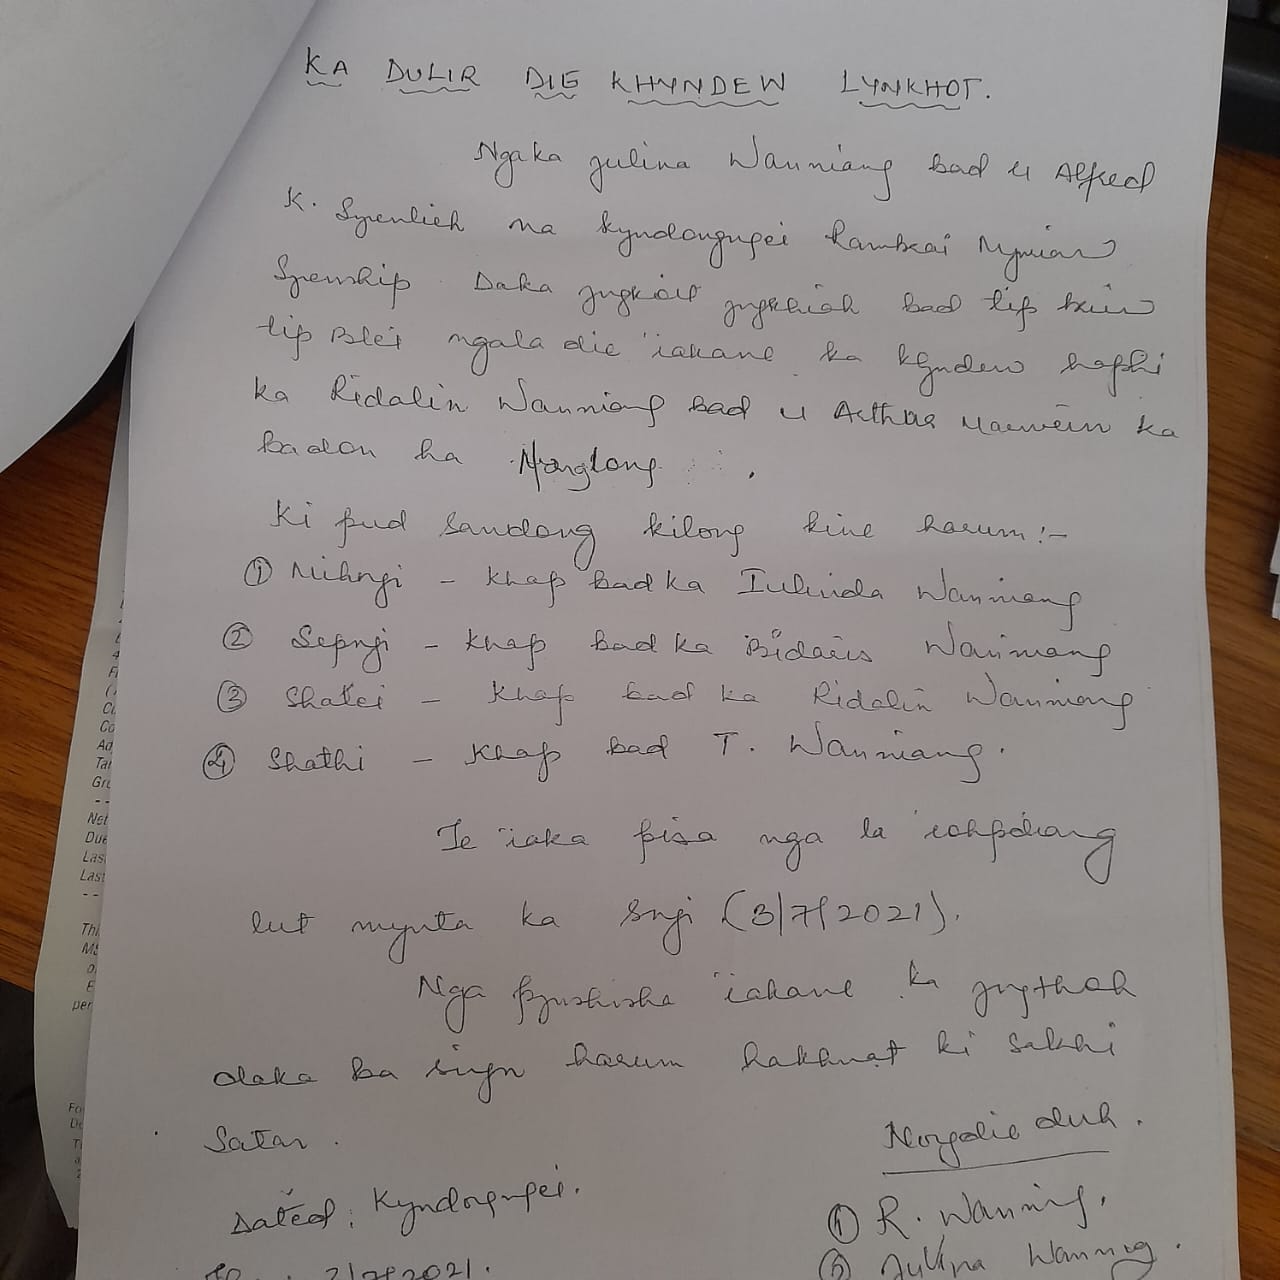 KA DULIR DIE KHYNDEW LYNKHOT.
Nga ka Julina Wanniang bad u Alfred
K. Syiemlieh na Kyndongngei Rambrai
Syiemship. Daka jngkoit jngkhiah bad tip briew
tip Blei nga la die iakane ka khyndew haphi
ka Ridalin Wanniang bad u Arthur Marwein ka
badon ha Nonglang.
Ki pud sawdong kilong kine harum:-
① Mihngi - Khap bad ka Iulinda Wanniang
② Sepngi - Khap bad ka Wanniang
③ Shatei - Khap bad ka Ridalin Wanniang
④ Shathi - Khap bad T. Wanniang.
Te iaka pisa nga la iohpdiang
lut mynta ka sngi (3/7/2021).
Nga pynshisha iakane ka jngthoh
daka ba sign harum hakhmat ki sakhi
Satar.
Nongdie duh.
Dated: Kyndongngei.
① R. Wanniang.
3/7/2021.
② Julina Wanniang.
Net
Due
Las
Last
per